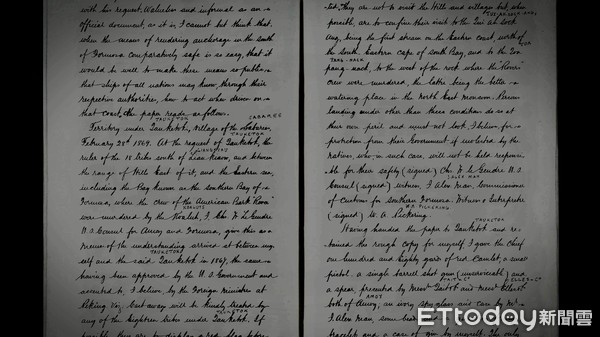 with his request. Valueless and informal as an
official document, as it is, I cannot but think that
when the means of rendering anchorage in the south
of Formosa comparatively safe is so easy, that it
would be well to make these means so public
that ships of all nations may know through their
respective authorities, how to act when driven on
that coast, the paper reads as follows.
TAUKETOK SABAREE
Territory under Tauketok, Village of the Sabaree,
TAUKETOK
February 28th 1869. At the request of Tauketok, the
ruler of the 18 tribes south of Liang Keaou, and between
the range of Hills East of it, and the Eastern sea,
including the Bay known as the southern Bay of
Formosa, where the crew of the American Bark "Rover"
KOALUTS
were murdered by the Koaluts, I, Chs. W. Le Gendre
U.S. Consul for Amoy and Formosa, give this as a
memo of the understanding arrived at between my-
TAUKETOK
self and the said Tauketok in 1867, the same
having been approved by the U.S. Government and
assented to, I believe, by the Foreign Ministers at
Peking Viz, Cast aways will be kindly treated by
TAUKETOK
any of the Eighteen tribes under Tauketok. If
possible they are to display a red flag before
They are not to visit the Hills and Villages but when
possible, are to confine their visit to the
being the first stream on the Eastern Coast, north of
the South Eastern cape of South Bay, and to the
to the west of the rock where the "Rover's"
crew were murdered, the latter being the better
watering place in the north East monsoon. Persons
landing under other than these conditions do so at
their own peril and must not look, I believe, for
protection from their Government if molested by the
natives, who in such case, will not be held responsi-
ble for their safety (signed) Chs. W. Le Gendre U.S.
Consul (signed) witness, J. Alex Man, Commissioner
of Customs for southern Formosa. Witness & Interpreter
WA PICKERING
(signed) W. A. Pickering.
TAUKETOK
Having handed the paper to Tauketok and re-
tained the rough copy for myself, I gave the Chief
one hundred and Eighty yards of red Camlet, a small
pistol, a single barrel shot gun (unserviceable) and
a spear, presented by
AMOY
both of Amoy; an ivory spy glass and case by Mr.
J. Alex Man, some beads
bracelets and a case of gin by myself. The only
ETtoday新聞雲